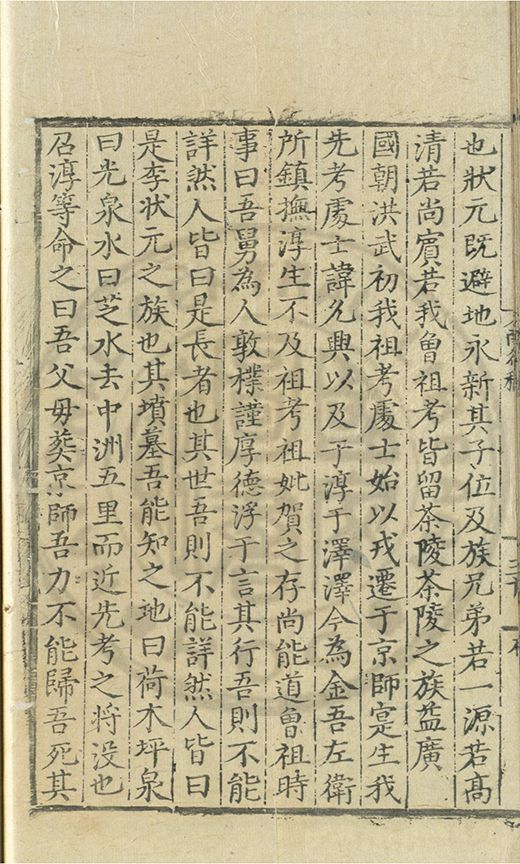 也狀元既避地永新其子位及族兄弟若一源若高
清若尚賓若我曾祖考皆留茶陵茶陵之族益廣
國朝洪武初我祖考處士始以戎遷于京師寔生我
先考處士諱允興以及于淳于澤澤今為金吾左衛
所鎮撫淳生不及祖考祖妣賀之存尚能道曾祖時
事曰吾舅為人敦樸謹厚德浮于言其行吾則不能
詳然人皆曰是長者也其世吾則不能詳然人皆曰
是李狀元之族也其墳墓吾能知之地曰荷木坪泉
曰光泉水曰芝水去中洲五里而近先考之將没也
召淳等命之曰吾父母葬京師吾力不能歸吾死其